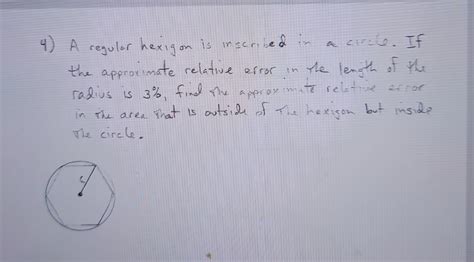 4) A regular hexigon is inscribed in a circle. If
the approximate relative error in the length of the
radius is 3%, find the approximate relative error
in the area that is outside of the hexigon but inside
the circle.